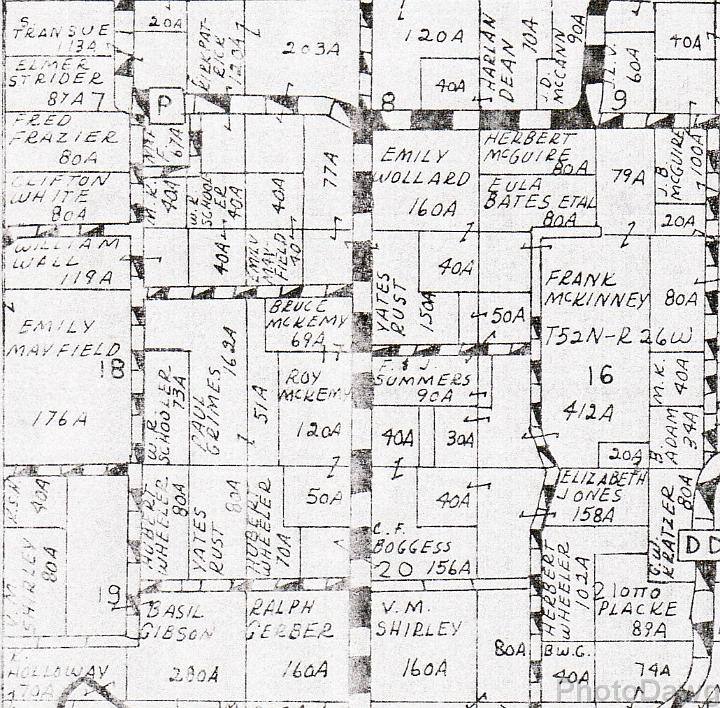 S.
TRANSUE
113A
ELMER
STRIDER
87A
FRED
FRAZIER
80A
CLIFTON
WHITE
80A
WILLIAM
WALL
119A
EMILY
MAYFIELD
18
176A
40A
V.M.
SHIRLEY
80A
19
HOLLOWAY
20A
KIRKPAT-
RICK
120A
203A
P
67A
M.K.
40A
W.R.
SCHOOL-
ER
40A
40A
77A
40A
EMILY
MAY
FIELD
40
BRUCE
MCKEMY
69A
162A
PAUL
GRIMES
W.R.
SCHOOLER
73A
51A
ROY
MCKEMY
120A
HUBERT
WHEELER
80A
YATES
RUST
80A
HUBERT
WHEELER
70A
50A
BASIL
GIBSON
280A
RALPH
GERBER
160A
120A
40A
8
HARLAN
DEAN
70A
J.D.
MCCANN
90A
J.L.V.
60A
9
40A
EMILY
WOLLARD
160A
HERBERT
MCGUIRE
80A
EULA
BATES ETAL
80A
79A
J.B.
MCGUIRE
100A
20A
40A
YATES
RUST
150A
50A
FRANK
MCKINNEY
80A
T52N-R26W
16
412A
M.K.
40A
B.
ADAM
34A
20A
F. & J.
SUMMERS
90A
40A
30A
40A
C.F.
BOGGESS
20 156A
ELIZABETH
JONES
158A
C.W.
KRATZER
80A
DD
HERBERT
WHEELER
102A
21 OTTO
PLACKE
89A
V.M.
SHIRLEY
160A
80A
B.W.G.
40A
74A
PhotoDawn